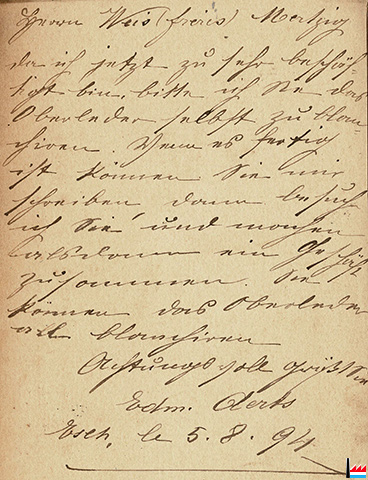 Herrn Weis (frères) Mertzig
da ich jetzt zu sehr beschäf-
tigt bin, bitte ich Sie das
Oberleder selbst zu blan-
chiren. Wenn es fertig
ist können Sie mir
schreiben dann besuch
ich Sie und machen
alsdann ein Geschäft
zusammen. Sie
können das Oberleder
all blanchiren
Achtungsvoll grüßt Sie
Edm. Aerts
Esch, le 5. 8. 94